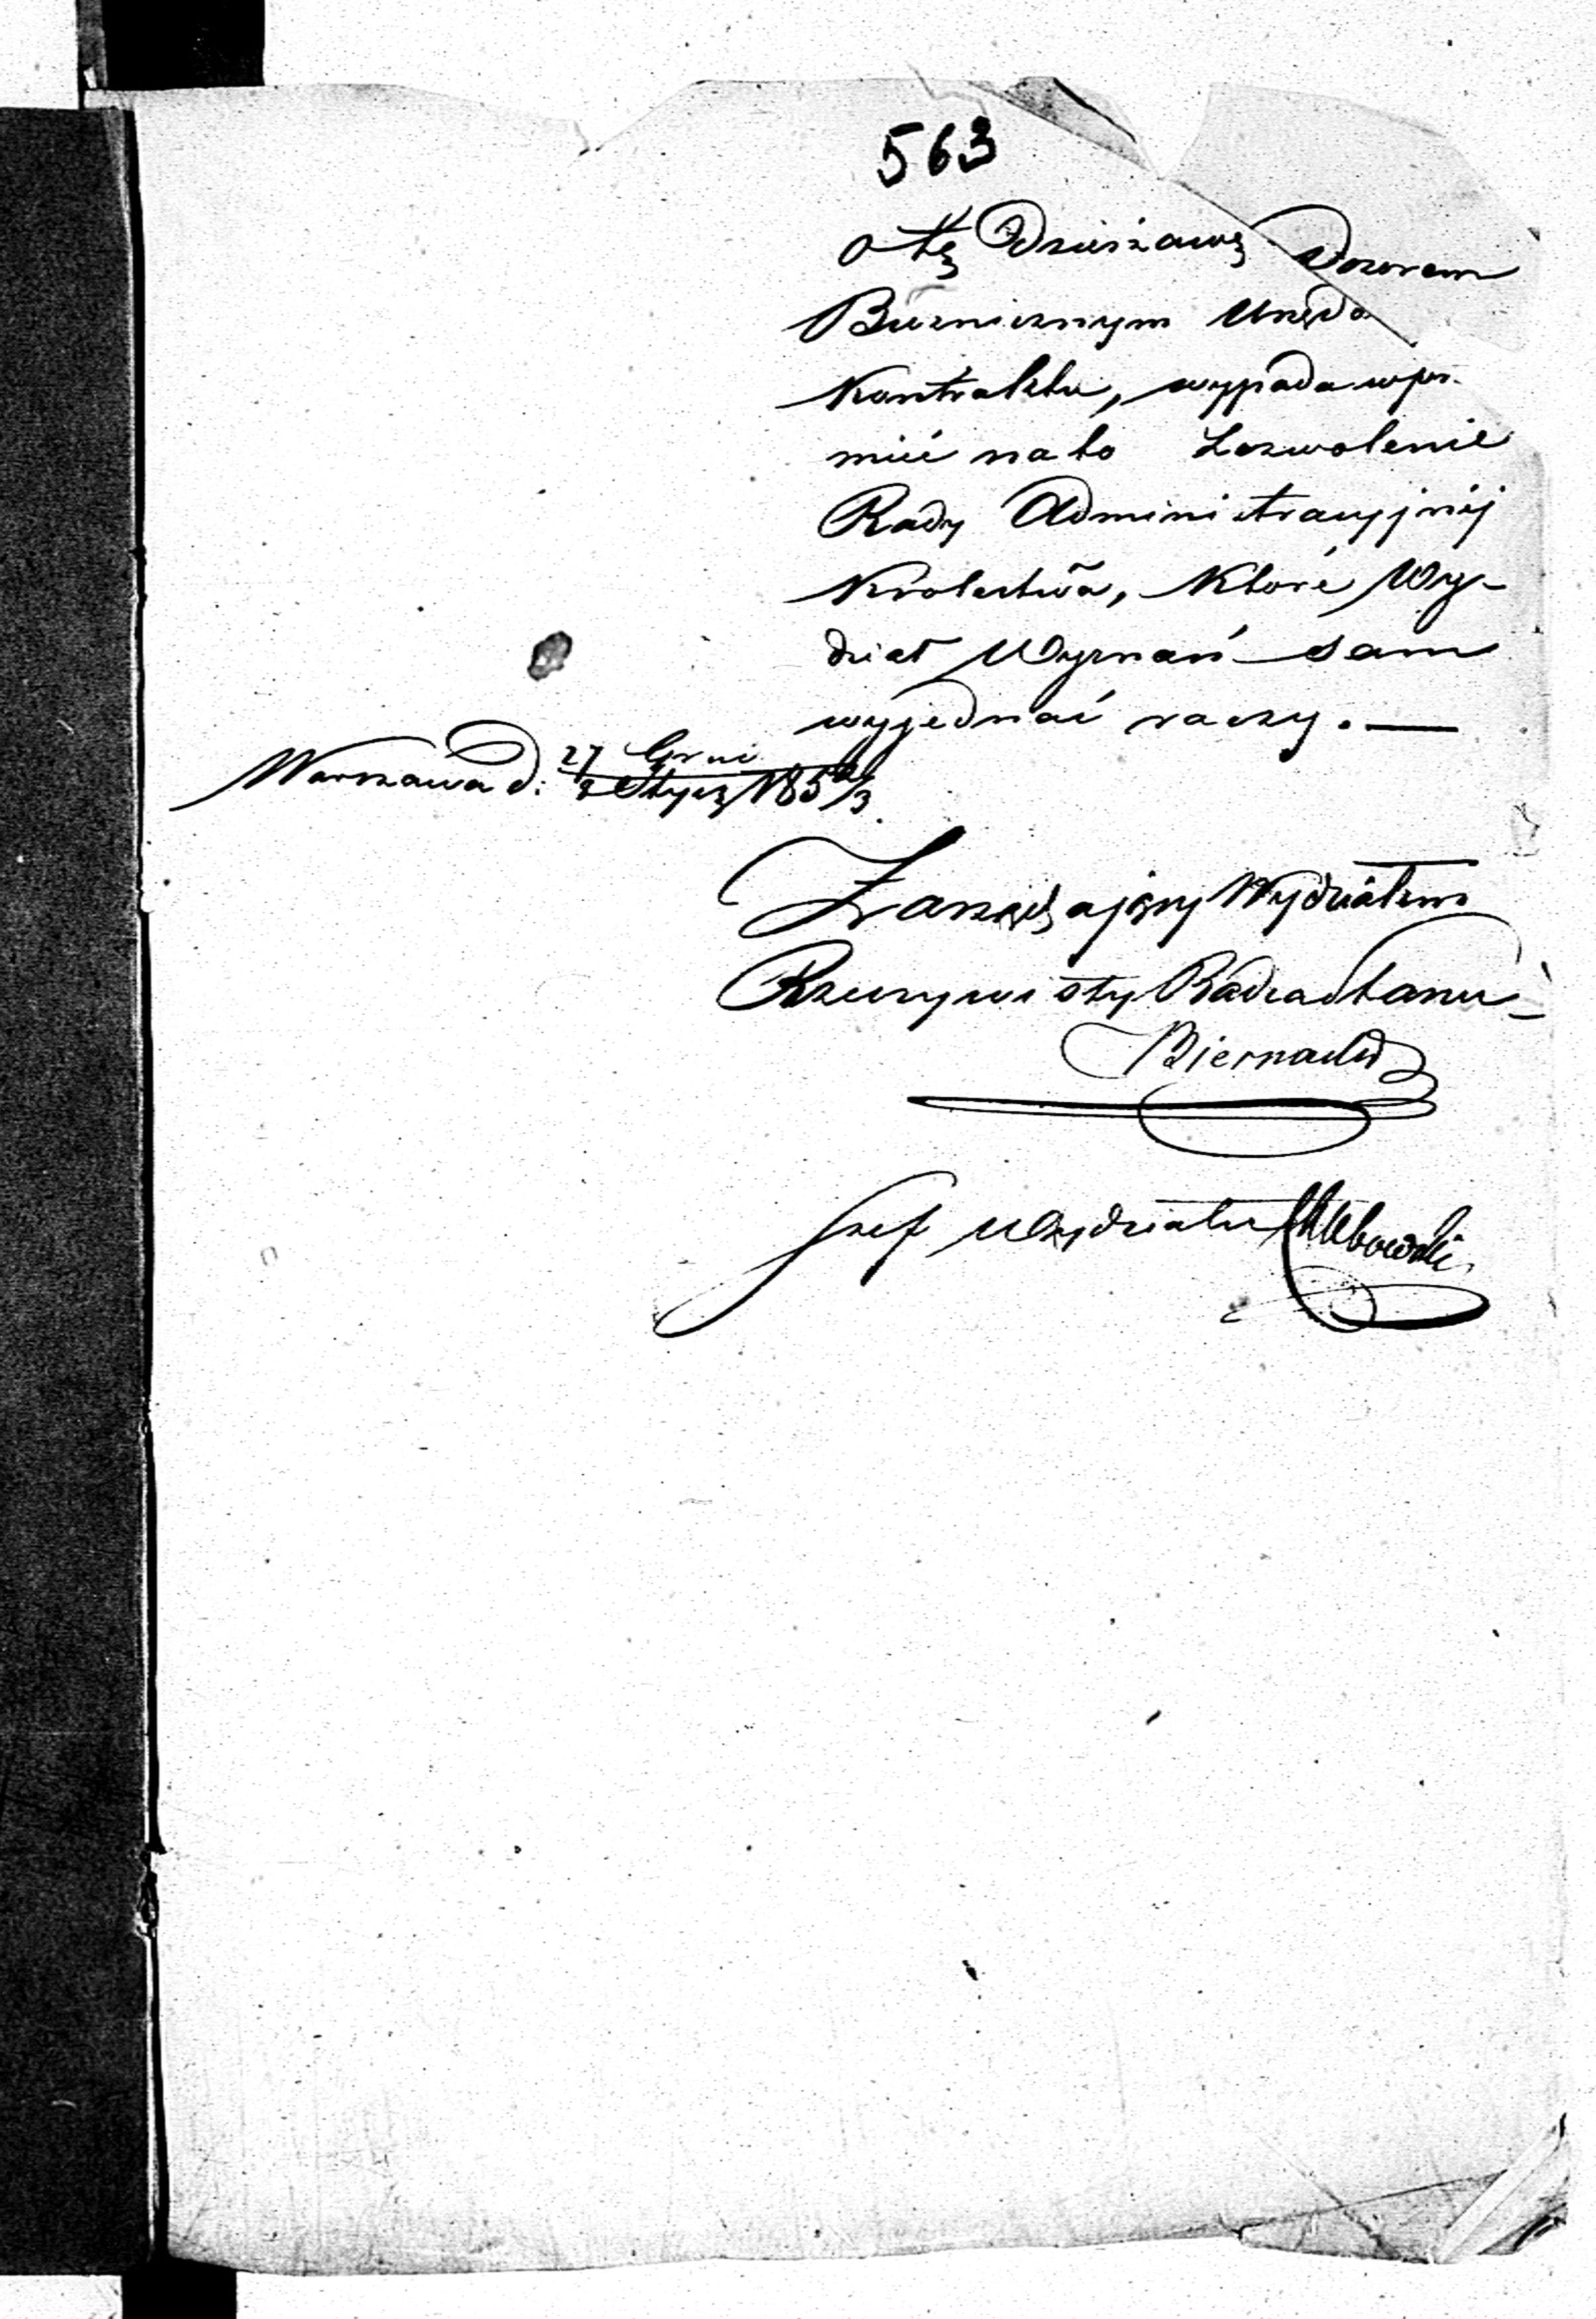 563
o tę Dzierżawę Dozorem
Bużnicznym Urzędo
Kontraktu, wypada wpr
mieć na to Zezwolenie
Rady Administracyjnéj
Królestwa, które Wy-
dział Wyznań sam
wyjednać raczy. —
Warszawa d: 27 Grud / 8 Stycz 1852/3
Zarządzający Wydziałem
Rzeczywisty Radca Stanu
Biernacki
Szef Wydziału Chlebowski